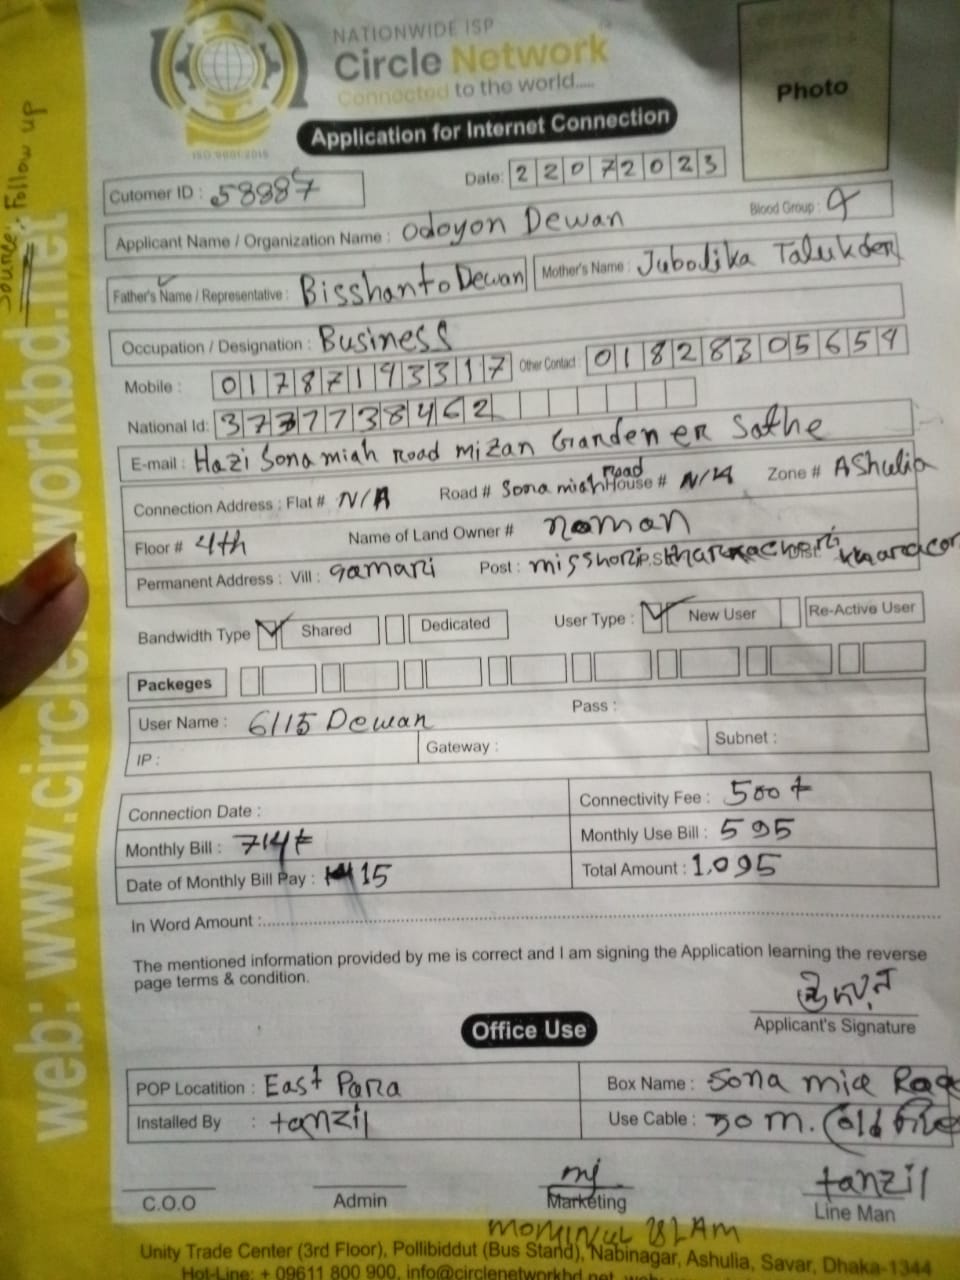 NATIONWIDE ISP
Circle Network
Connected to the world.....
ISO 9001:2015
Photo
Application for Internet Connection
Source: Follow up
web: www.circlenetworkbd.net
Cutomer ID : 58887
Date: 22072023
Applicant Name / Organization Name : Odoyon Dewan
Blood Group :
Father's Name / Representative : Bisshanto Dewan
Mother's Name : Jubodika Talukder
Occupation / Designation : Business
Mobile : 01787193317 Other Contact : 01828305654
National Id: 3737738462
E-mail : Hazi Sona miah road mizan Garden er Sathe
Connection Address : Flat # N/A Road # Sona miah Road House # N/A Zone # AShulia
Floor # 4th Name of Land Owner # noman
Permanent Address : Vill : gamari Post :
Bandwidth Type Shared Dedicated User Type : New User Re-Active User
Packeges
User Name : 6115 Dewan Pass :
IP : Gateway : Subnet :
Connection Date : Connectivity Fee : 500
Monthly Bill : 714 Monthly Use Bill : 595
Date of Monthly Bill Pay : 15 Total Amount : 1,095
In Word Amount :
The mentioned information provided by me is correct and I am signing the Application learning the reverse
page terms & condition.
Applicant's Signature
Office Use
POP Locatition : East Para Box Name : Sona mia Road
Installed By : tanzil Use Cable : 30 m.
C.O.O Admin Marketing tanzil
Line Man
MOMINUL ISLAM
Unity Trade Center (3rd Floor), Pollibiddut (Bus Stand), Nabinagar, Ashulia, Savar, Dhaka-1344
Hot-Line: + 09611 800 900, info@circlenetworkbd.net,